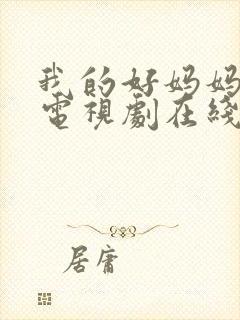 我的好妈妈
電視劇在綫
居庸